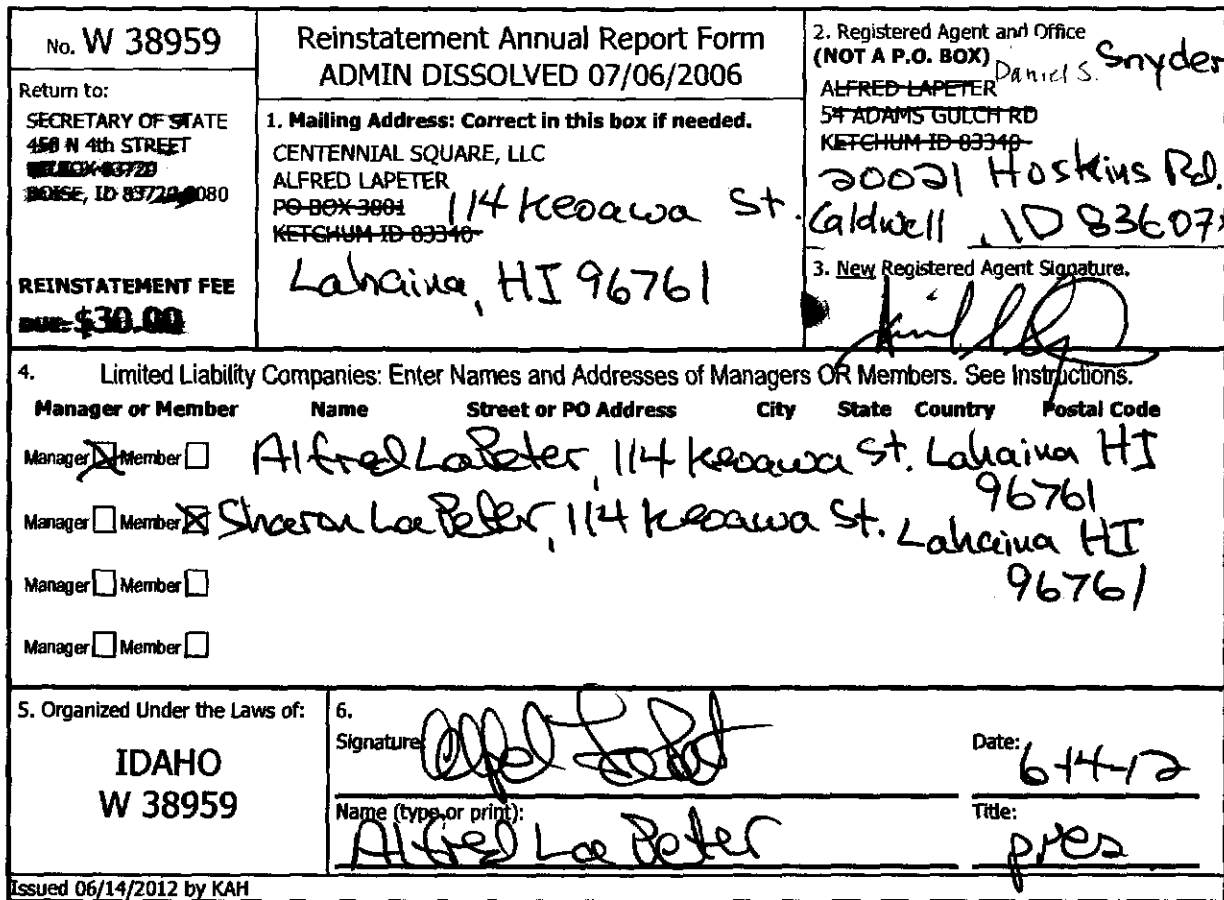 No. W 38959
Return to:
SECRETARY OF STATE
450 N 4th STREET
BOISE, ID 83720-0080
REINSTATEMENT FEE
DUE: $30.00
Reinstatement Annual Report Form
ADMIN DISSOLVED 07/06/2006
1. Mailing Address: Correct in this box if needed.
CENTENNIAL SQUARE, LLC
ALFRED LAPETER
PO BOX 3801 114 Keoawa St.
KETCHUM ID 83340
Lahaina, HI 96761
2. Registered Agent and Office
(NOT A P.O. BOX) Daniel S. Snyder
ALFRED LAPETER
54 ADAMS GULCH RD
KETCHUM ID 83340
20021 Hoskins Rd.
Caldwell, ID 83607
3. New Registered Agent Signature.
4. Limited Liability Companies: Enter Names and Addresses of Managers OR Members. See Instructions.
Manager or Member Name Street or PO Address City State Country Postal Code
Manager Member Alfred LaPeter, 114 Keoawa St. Lahaina HI
96761
Manager Member Sharon LaPeter, 114 Keoawa St. Lahaina HI
96761
Manager Member
Manager Member
5. Organized Under the Laws of:
IDAHO
W 38959
6.
Signature: Date: 6-14-12
Name (type or print): Title:
Alfred LaPeter pres
Issued 06/14/2012 by KAH